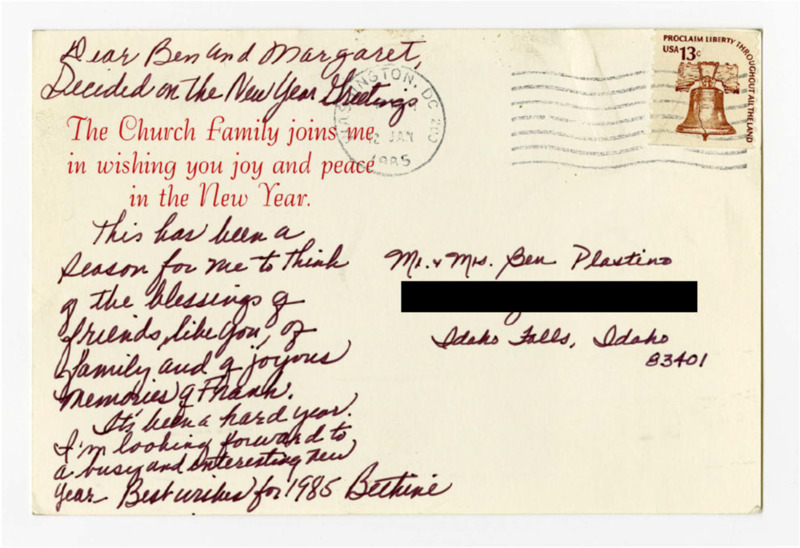 Dear Ben and Margaret,
Decided on the New Year Greetings
The Church Family joins me
in wishing you joy and peace
in the New Year.
This has been a
season for me to think
of the blessings of
friends, like you, of
family and of joyous
memories of Frank.
It's been a hard year.
I'm looking forward to
a busy and interesting new
year. Best wishes for 1985 Bethine
WASHINGTON, DC
2 JAN
1985
PROCLAIM LIBERTY THROUGHOUT ALL THE LAND
USA 13c
Mr. & Mrs. Ben Plastino
Idaho Falls, Idaho
83401